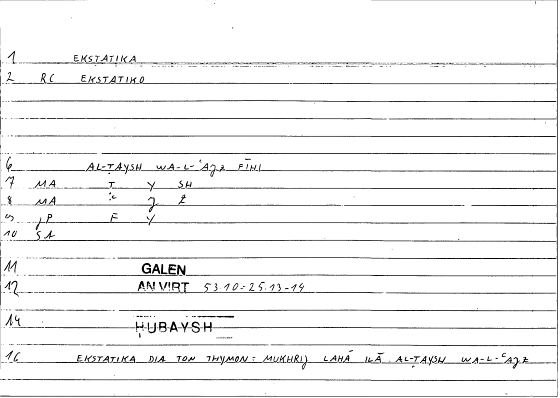 1 EKSTATIKA
2 RC EKSTATIKO
6 AL-ṬAYSH WA-L-ʿAǦZ FĪHI
7 MA Ṭ Y SH
8 MA ʿ Ǧ Z
9 JP F Y
10 SA
11 GALEN
12 AN VIRT 53.10 = 25.13-14
14 ḤUBAYSH
16 EKSTATIKA DIA TON THYMON = MUKHRIǦ LAHĀ ILĀ AL-ṬAYSH WA-L-ʿAǦZ